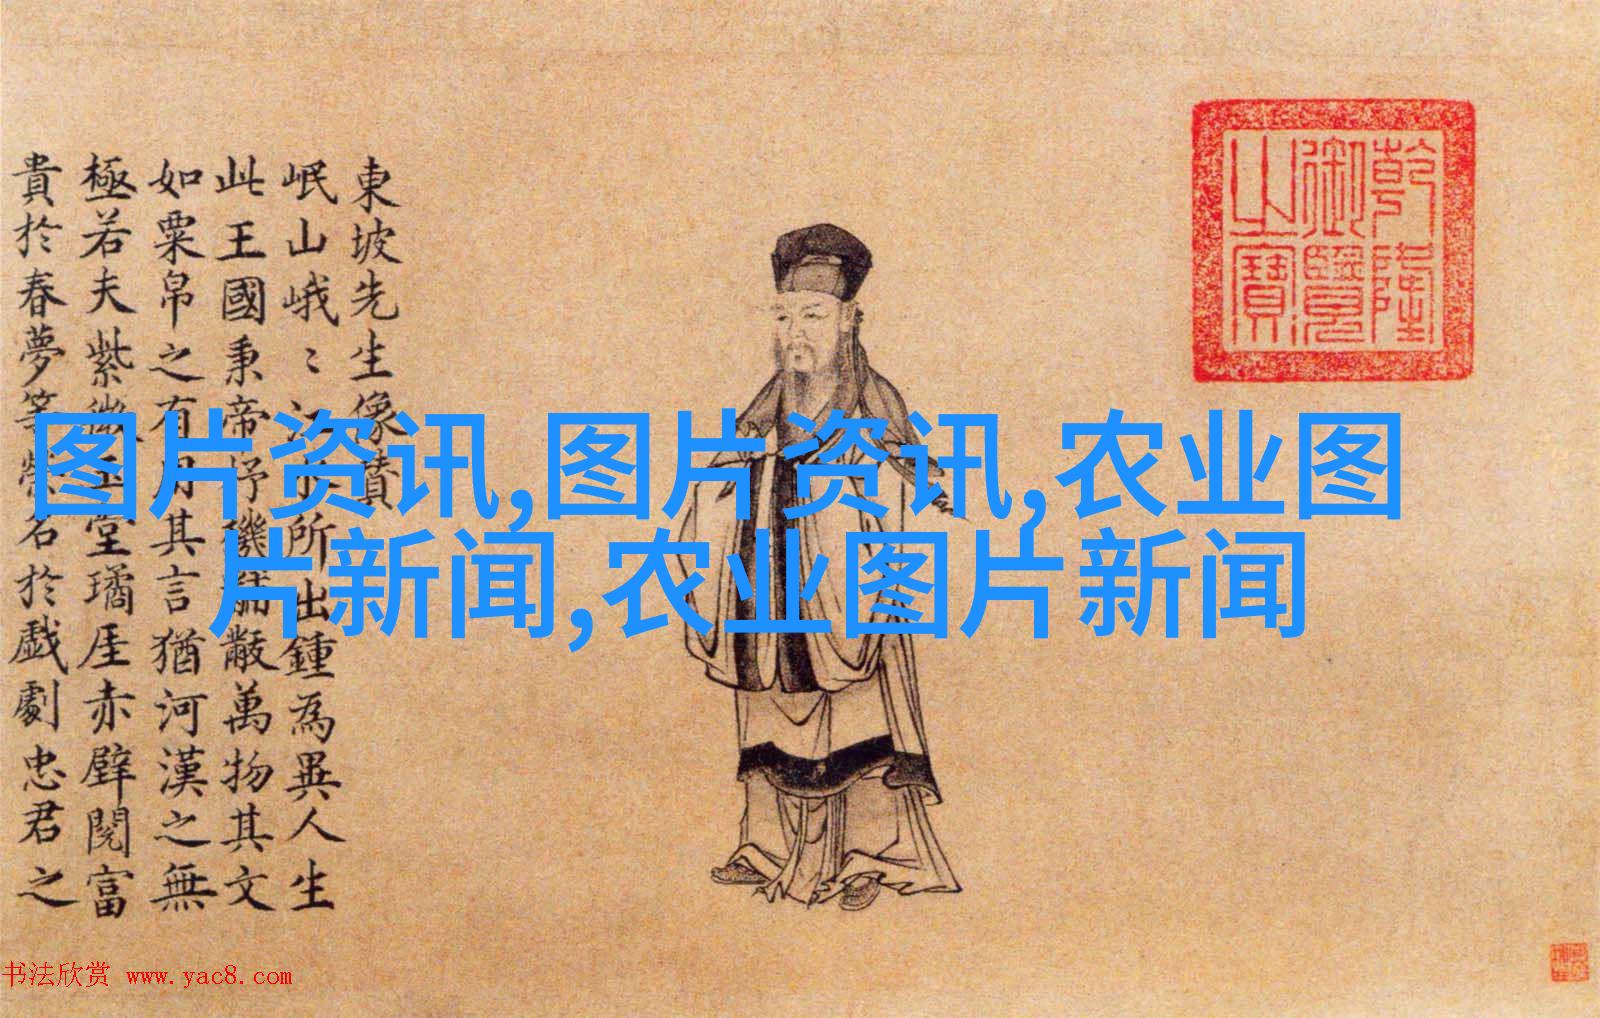 乾隆御覽之寶
東坡先生像
岷山峨〻江水所出鍾為異人生
此王國秉帝杼機黼黻萬物其文
如粟帛之有用其言猶河漢之無
極若夫紫微玉堂璚厓赤壁閱富
貴於春夢等榮名於戲劇忠君之
图片资讯,图片资讯,农业图
片新闻,农业图片新闻
书法欣赏 www.yac8.com